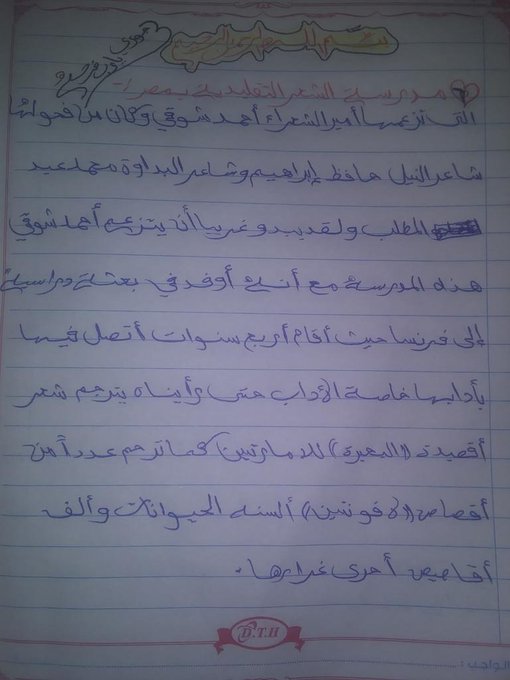 بسم الله الرحمن الرحيم
مدرسة الشعر التقليدية بمصر :-
التى تزعمها أمير الشعراء أحمد شوقي وكان من فحولها
شاعر النيل حافظ إبراهيم وشاعر البداوة محمد عبد
المطلب ولقد يبدو غريبا أن يتزعم أحمد شوقي
هذه المدرسة مع أنه أوفد في بعثة دراسية
إلى فرنسا حيث أقام أربع سنوات أتصل فيها
بأدابها خاصة الأداب حتى رأيناه يترجم شعر
أقصيدة ((البحيرة)) للامارتين كما ترجم عدداً من
أقصاص ((لافونتين)) ألسنه الحيوانات وألف
أقاصيص أخرى غرارها.
D.T.H
الواجب: